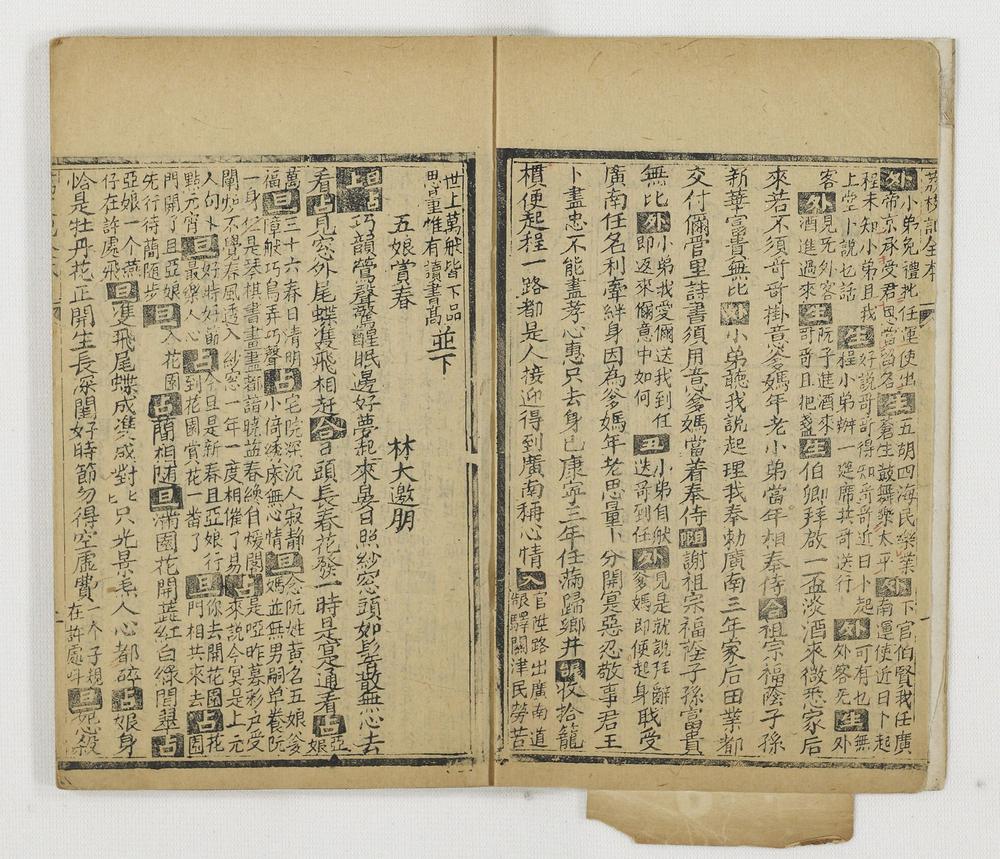 荔枝記全本
外小弟免禮批任運使出生五胡四海民樂業
帝京承受君囙當鄙名蒼生鼓舞樂太平外南運使近日卜起
程未知小弟且我生好說哥哥得知哥哥近日卜起可有也無
上堂卜說乜話程小弟辦一筵席共哥送行外外客旡生外
客旡外見旡外客生阮子進酒來
酒進過來哥哥且把盞生伯卿拜啟一盃淡酒來微悉家后
來若不須哥哥掛意爹媽年老小弟當年相奉侍合祖宗福蔭子孫
新華富貴無比外小弟聽我說起理我奉勅廣南三年家后田業都
交付爾管里詩書須用意爹媽當着奉侍謝祖宗福蔭子孫富貴
無比外小弟我愛爾送我到任丑小弟自然外見是就說拜辭
即返來爾意中如何送哥到任爹媽即便起身耽受
廣南任名利牽絆身因為爹媽年老思量卜分開寔惡忍敬事君王
卜盡忠不能盡孝心惠只去身已康寧三年任滿歸鄉井收拾籠
櫃便起程一路都是人接迎得到廣南稱心情入官陞路出廣南道
驛關津民勞苦
世上萬般皆下品
惟有讀書高並下
五娘賞春
林大邀朋
旦占
上巧韻鶯聲驚醒眠邊好夢起來晏日照紗窓頭如髻散無心去
看占見窓外尾蝶雙飛相赶合日頭長春花發一時是寔通看占亞娘
萬福旦三十六春日清明占宅院深沉人寂静旦念阮姓黃名五娘爹
障般巧鳥弄巧聲小倚綉床無心情媽並無男嗣单養阮
一身仁是琴棋書畫盡都諳曉益春綉自煖閣占是啞昨暮彩户受
閣如不覺春風透入紗窓一年一度相催了易來說今冥是上元
人句卜好時好節占今旦是新春且亞娘行旦你去開花園占花
點元宵旦最樂人心到花園賞花一番了門相共來去園
門開了且亞娘旦入花園占簡相随旦滿園花開蕋紅白綠間翠占
旡行待簡随步
亞娘一个燕旦雙飛尾蝶成雙成對比只光景柰人心都碎占娘身
仔在許處飛
恰是牡丹花正開生長深閨好時節勿得空虛費一个子規旦
在許處叫